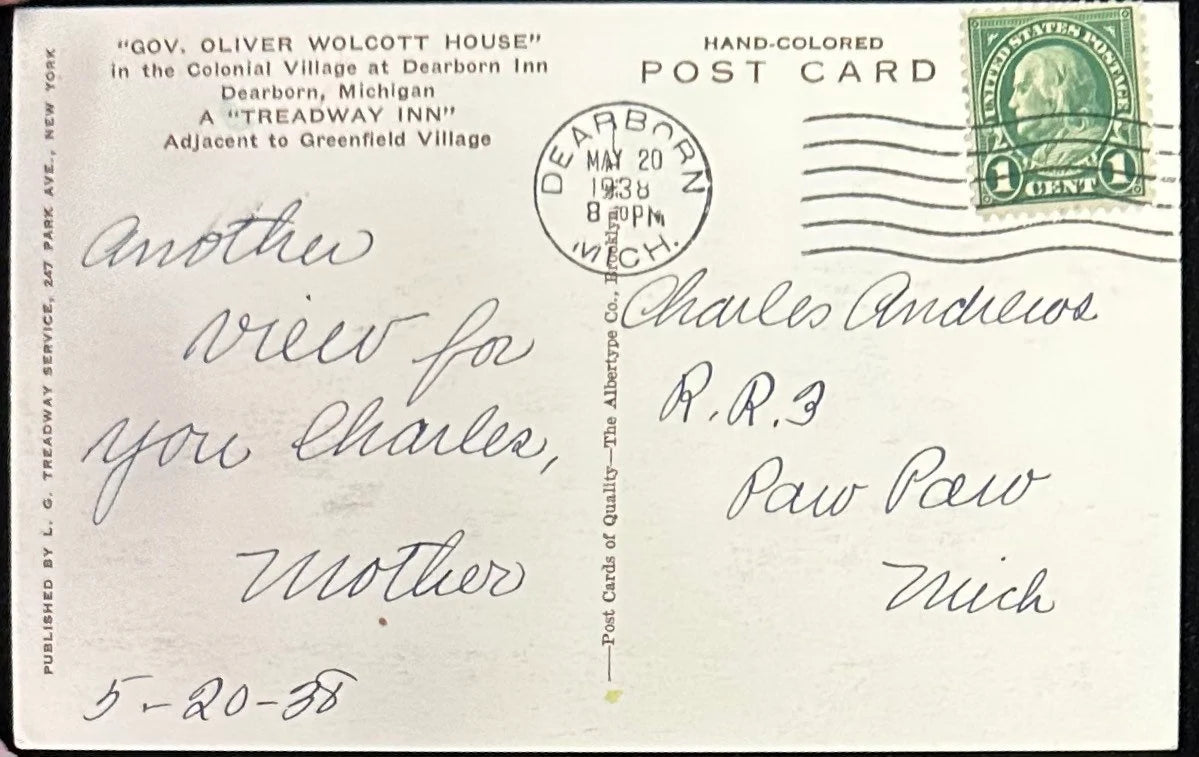 "GOV. OLIVER WOLCOTT HOUSE"
in the Colonial Village at Dearborn Inn
Dearborn, Michigan
A "TREADWAY INN"
Adjacent to Greenfield Village
PUBLISHED BY L. G. TREADWAY SERVICE, 247 PARK AVE., NEW YORK
HAND-COLORED
POST CARD
DEARBORN
MAY 20
1938
8 PM
MICH.
UNITED STATES POSTAGE
1 CENT 1
Another
view for
you Charles,
Mother
5-20-38
—Post Cards of Quality—The Albertype Co., Brooklyn
Charles Andrews
R.R.3
Paw Paw
Mich